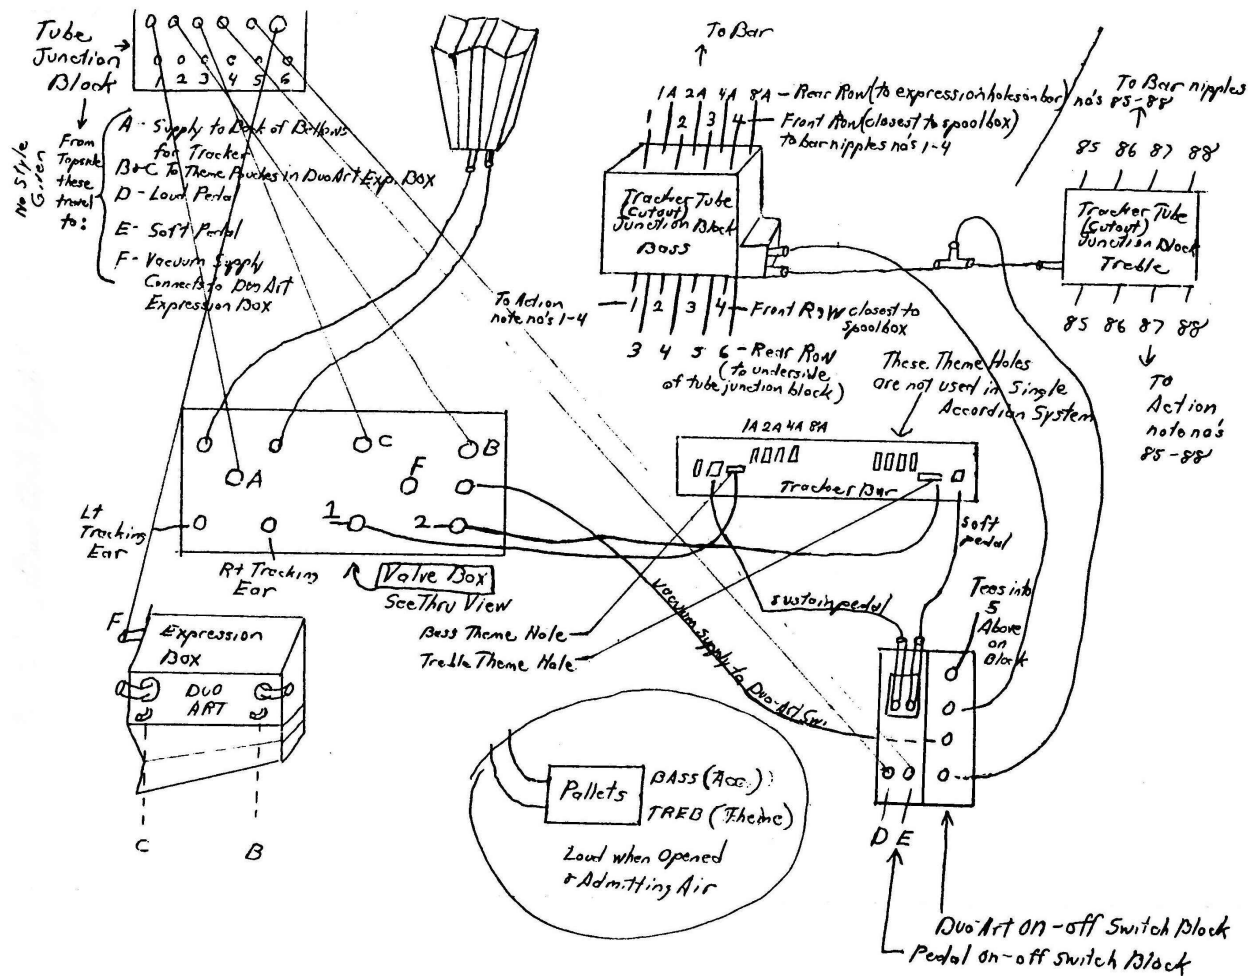 Tube
Junction
Block
1 2 3 4 5 6
No Style
Given
From
Topside
these
travel
to:
A - Supply to Back of Bellows
for Tracker
B&C To Theme Pouches in Duo Art Exp. Box
D - Loud Pedal
E - Soft Pedal
F - Vacuum Supply
Connects to Duo Art
Expression Box
To Bar
1A 2A 4A 8A - Rear Row (to expression holes on bar)
1 2 3 4 - Front Row (closest to spoolbox)
to bar nipples no's 1-4
Tracker Tube
(Cutout)
Junction Block
Bass
To Action
note no's 1-4
1 2 3 4 - Front Row closest to
spoolbox
3 4 5 6 - Rear Row
(to underside
of tube junction block)
To Bar nipples
no's 85-88
85 86 87 88
Tracker Tube
(Cutout)
Junction Block
Treble
85 86 87 88
To
Action
note no's
85-88
These Theme Holes
are not used in Single
Accordian System
1A 2A 4A 8A
Tracker Bar
C
B
A
F
1
2
Lt
Tracking
Ear
Rt Tracking
Ear
Valve Box
See Thru View
Bass Theme Hole
Treble Theme Hole
soft
pedal
sustain pedal
Vacuum supply to Duo-Art Sw.
Tees into
5
Above
on
Block
F
Expression
Box
DUO
ART
C
B
Pallets
BASS (Acc.)
TREB (Theme)
Loud when Opened
& Admitting Air
D E
Duo-Art on-off Switch Block
Pedal on-off switch Block